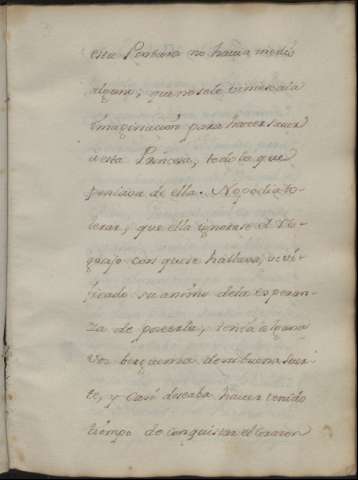 esta Pintura no hacia medio
alguno, que no sele viniera ála
imaginacion para hacer saver
à esta Princesa, todo lo que
pensava de ella. No podia to-
lerar, que ella ignorase el
con que se hallava,
ficado su animo dela esperan-
za de poseerla, tenia alguna
vez berguenza de su buena suer-
te, y casi deseaba haver tenido
tiempo de conquistar el corazon